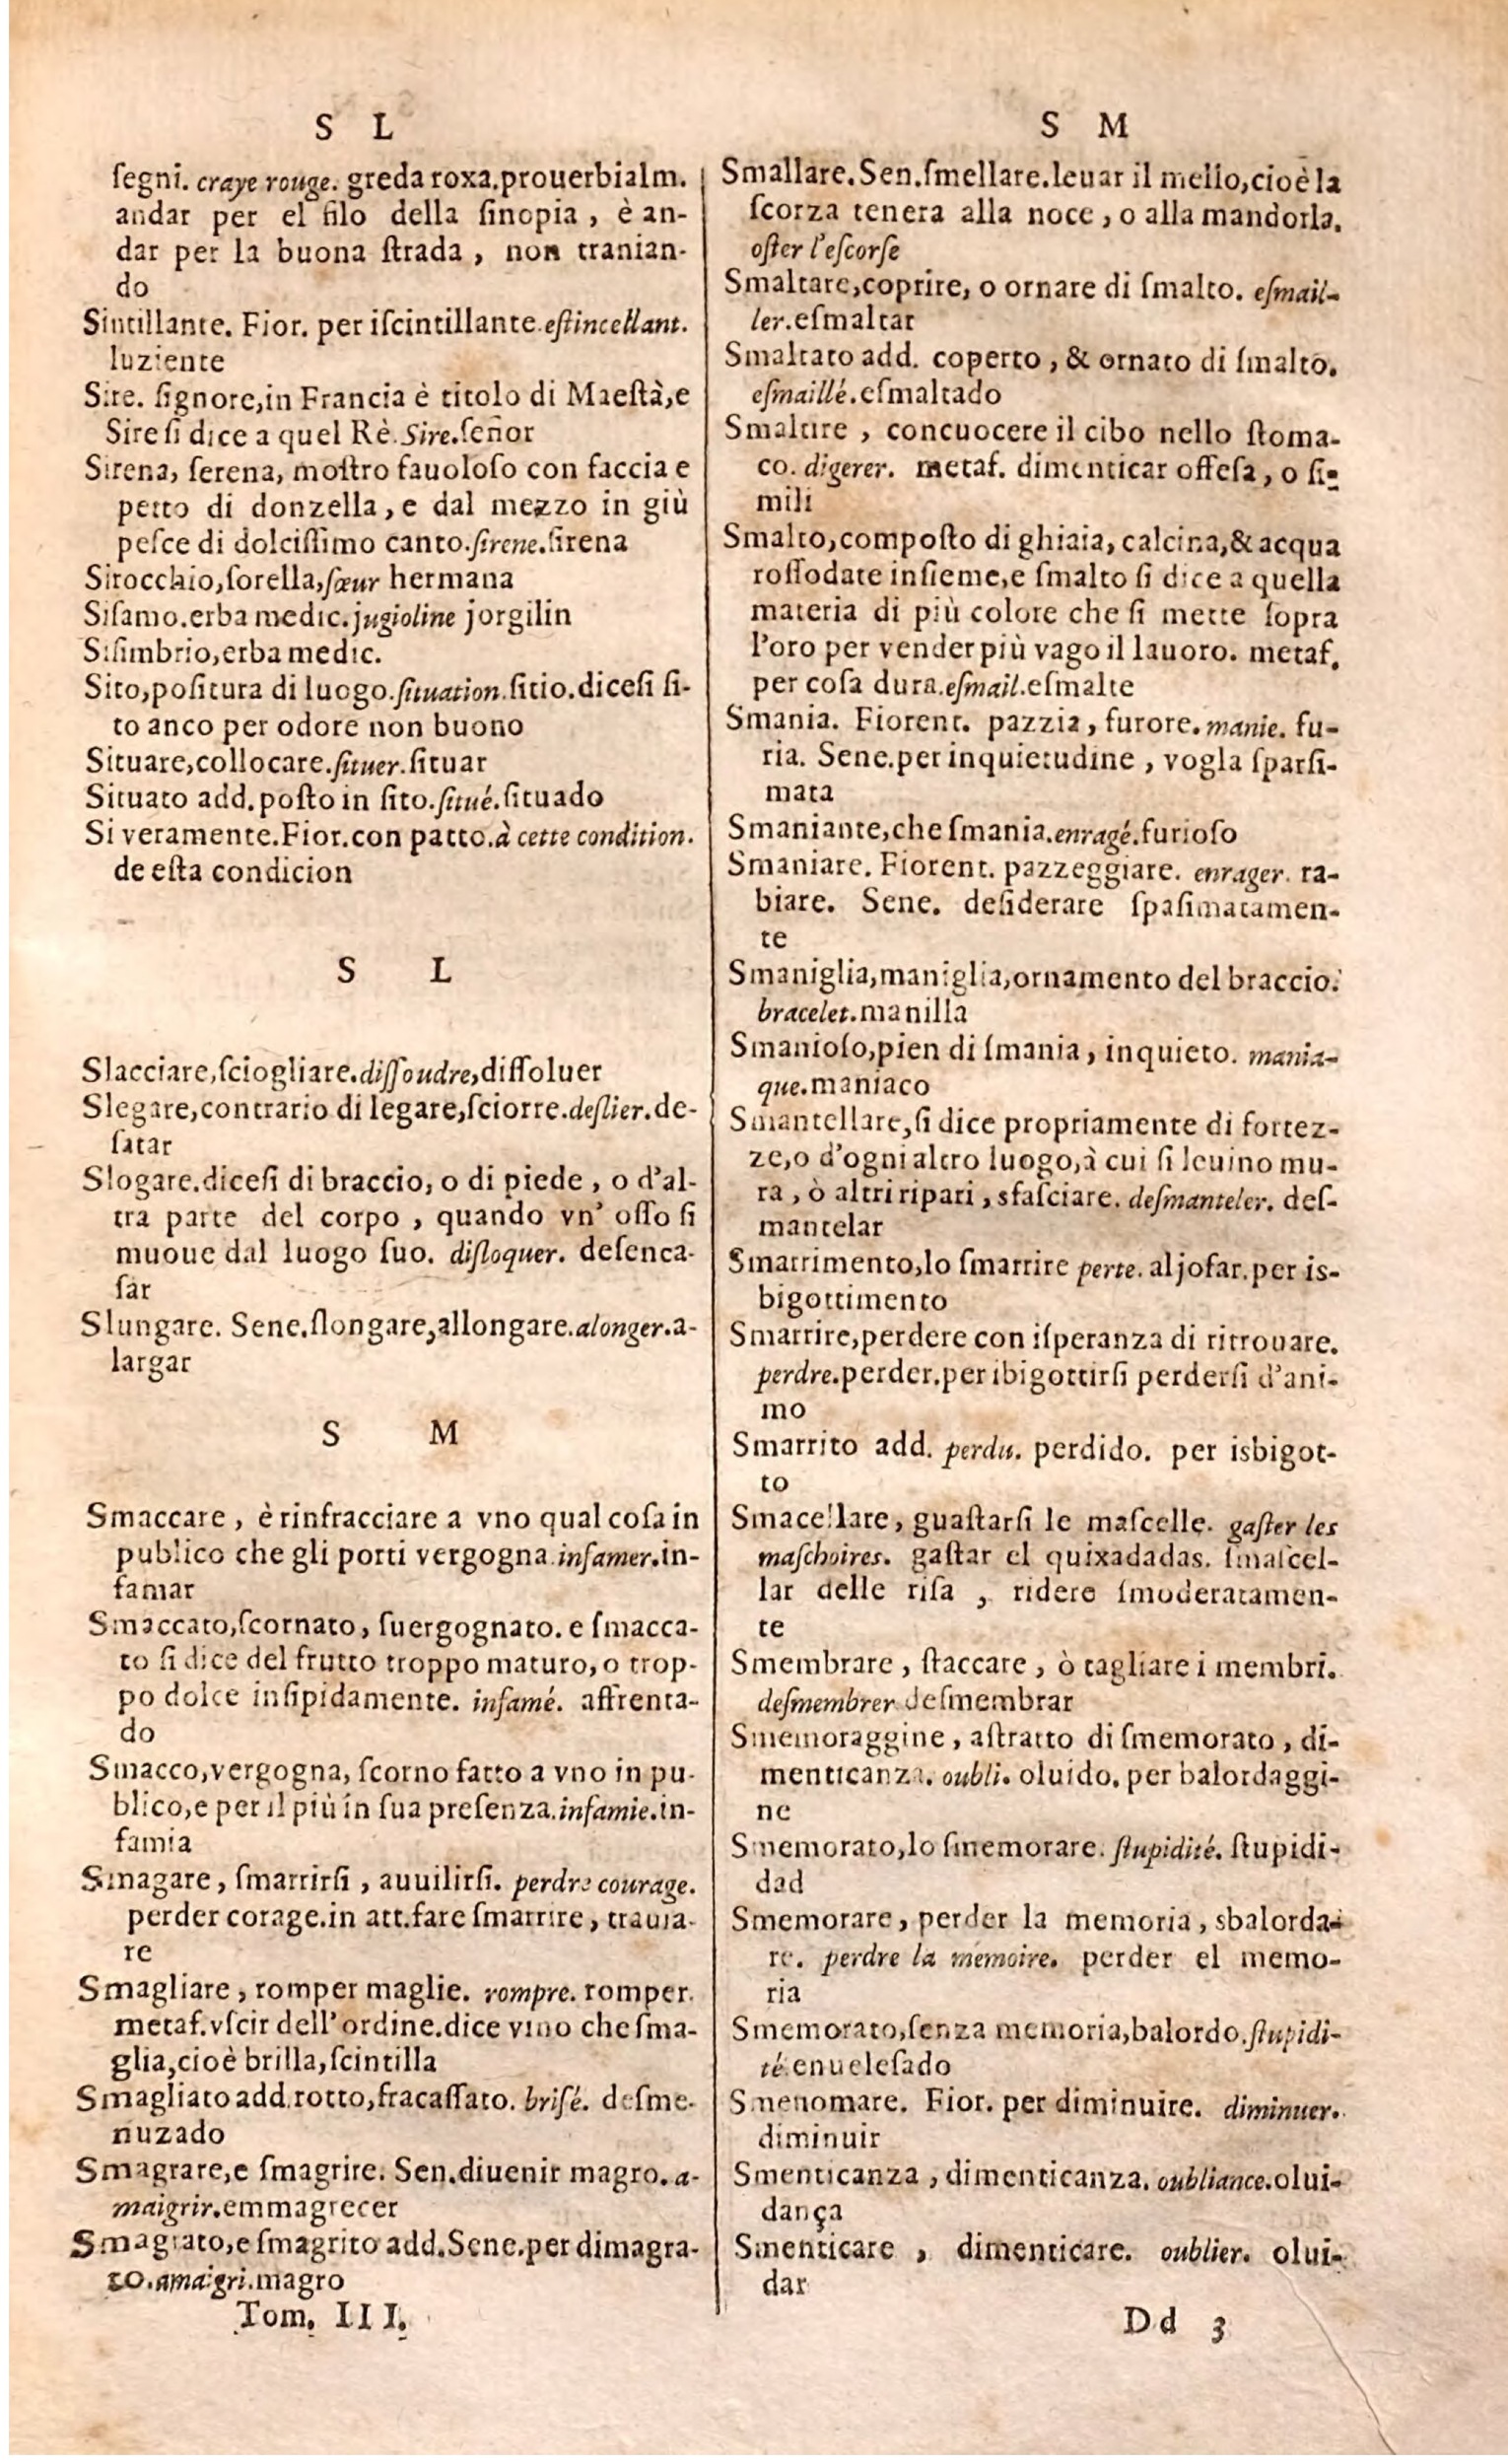 S L
ſegni. craye rouge. greda roxa.prouerbialm.
andar per el filo della ſinopia, è an-
dar per la buona ſtrada, non tranian-
do
Sintillante. Fior. per iſcintillante.eſtincellant.
luziente
Sire. ſignore,in Francia è titolo di Maeſtà,e
Sire ſi dice a quel Rè.Sire.ſeñor
Sirena, ſerena, moſtro fauoloſo con faccia e
petto di donzella, e dal mezzo in giù
peſce di dolciſſimo canto.ſirene.ſirena
Sirocchio,ſorella,ſœur hermana
Siſamo.erba medic.jugioline jorgilin
Siſimbrio,erba medic.
Sito,poſitura di luogo.ſituation.ſitio.diceſi ſi-
to anco per odore non buono
Situare,collocare.ſituer.ſituar
Situato add.poſto in ſito.ſitué.ſituado
Si veramente.Fior.con patto.à cette condition.
de eſta condicion
S L
Slacciare,ſciogliare.diſſoudre,diſſoluer
Slegare,contrario di legare,ſciorre.deſlier.de-
ſatar
Slogare.diceſi di braccio, o di piede, o d'al-
tra parte del corpo, quando vn' oſſo ſi
muoue dal luogo ſuo. diſloquer. deſenca-
ſar
Slungare. Sene.ſlongare,allongare.alonger.a-
largar
S M
Smaccare, è rinfracciare a vno qual coſa in
publico che gli porti vergogna.infamer.in-
famar
Smaccato,ſcornato, ſuergognato. e ſmacca-
to ſi dice del frutto troppo maturo, o trop-
po dolce inſipidamente. infamé. affrenta-
do
Smacco,vergogna, ſcorno fatto a vno in pu-
blico,e per il più in ſua preſenza.infamie.in-
famia
Smagare, ſmarrirſi, auuilirſi. perdre courage.
perder corage.in att.fare ſmarrire, trauia-
re
Smagliare, romper maglie. rompre. romper.
metaf.vſcir dell'ordine.dice vino che ſma-
glia,cioè brilla, ſcintilla
Smagliato add.rotto,fracaſſato. briſé. deſme-
nuzado
Smagrare,e ſmagrire. Sen.diuenir magro. a-
maigrir.emmagrecer
Smagrato,e ſmagrito add.Sene.per dimagra-
to.amaigri.magro
Tom. III.
S M
Smallare.Sen.ſmellare.leuar il mello,cioè la
ſcorza tenera alla noce, o alla mandorla.
oſter l'eſcorſe
Smaltare,coprire, o ornare di ſmalto. eſmail-
ler.eſmaltar
Smaltato add. coperto, & ornato di ſmalto.
eſmaillé.eſmaltado
Smaltire, concuocere il cibo nello ſtoma-
co. digerer. metaf. dimenticar offeſa, o ſi-
mili
Smalto,compoſto di ghiaia, calcina,& acqua
roſſodate inſieme,e ſmalto ſi dice a quella
materia di più colore che ſi mette ſopra
l'oro per vender più vago il lauoro. metaf.
per coſa dura.eſmail.eſmalte
Smania. Fiorent. pazzia, furore. manie. fu-
ria. Sene.per inquietudine, vogla ſparſi-
mata
Smaniante,che ſmania.enragé.furioſo
Smaniare. Fiorent. pazzeggiare. enrager. ra-
biare. Sene. deſiderare ſpaſimatamen-
te
Smaniglia,maniglia,ornamento del braccio.
bracelet.manilla
Smanioſo,pien di ſmania, inquieto. mania-
que.maniaco
Smantellare,ſi dice propriamente di fortez-
ze,o d'ogni altro luogo,à cui ſi leuino mu-
ra, ò altri ripari, sfaſciare. deſmanteler. deſ-
mantelar
Smarrimento,lo ſmarrire perte. aljofar.per is-
bigottimento
Smarrire,perdere con iſperanza di ritrouare.
perdre.perder.per ibigottirſi perderſi d'ani-
mo
Smarrito add. perdu. perdido. per isbigot-
to
Smacellare, guaſtarſi le maſcelle. gaſter les
maſchoires. gaſtar el quixadadas. ſmaſcel-
lar delle riſa, ridere ſmoderatamen-
te
Smembrare, ſtaccare, ò tagliare i membri.
deſmembrer deſmembrar
Smemoraggine, aſtratto di ſmemorato, di-
menticanza. oubli. oluido. per balordaggi-
ne
Smemorato,lo ſmemorare. ſtupidité. ſtupidi-
dad
Smemorare, perder la memoria, sbalorda-
re. perdre la memoire. perder el memo-
ria
Smemorato,ſenza memoria,balordo.ſtupidi-
té.enueleſado
Smenomare. Fior. per diminuire. diminuer.
diminuir
Smenticanza, dimenticanza. oubliance.olui-
dança
Smenticare, dimenticare. oublier. olui-
dar
Dd 3